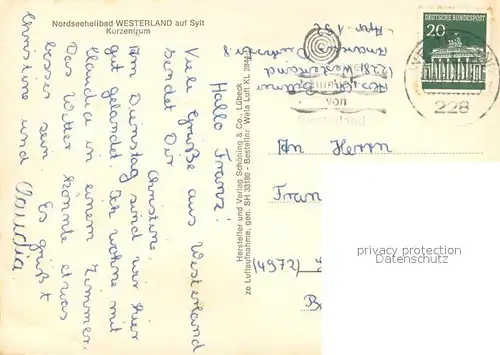 Nordseeheilbad WESTERLAND auf Sylt
Kurzentrum
Hallo Franz!
Viele Grüße aus Westerland
sendet Dir
Christine.
Am Dienstag sind wir hier
gut gelandet. Ich wohne mit
Claudia in einem Zimmer.
Das Wetter könnte etwas
besser sein. Es grüßt
Christine und Claudia.
Hersteller und Verlag Schöning & Co., Lübeck
DEUTSCHE BUNDESPOST
20
228
von
Westerland
2280 Westerland
An Herrn
Fran
(4972)
privacy protection
Datenschutz